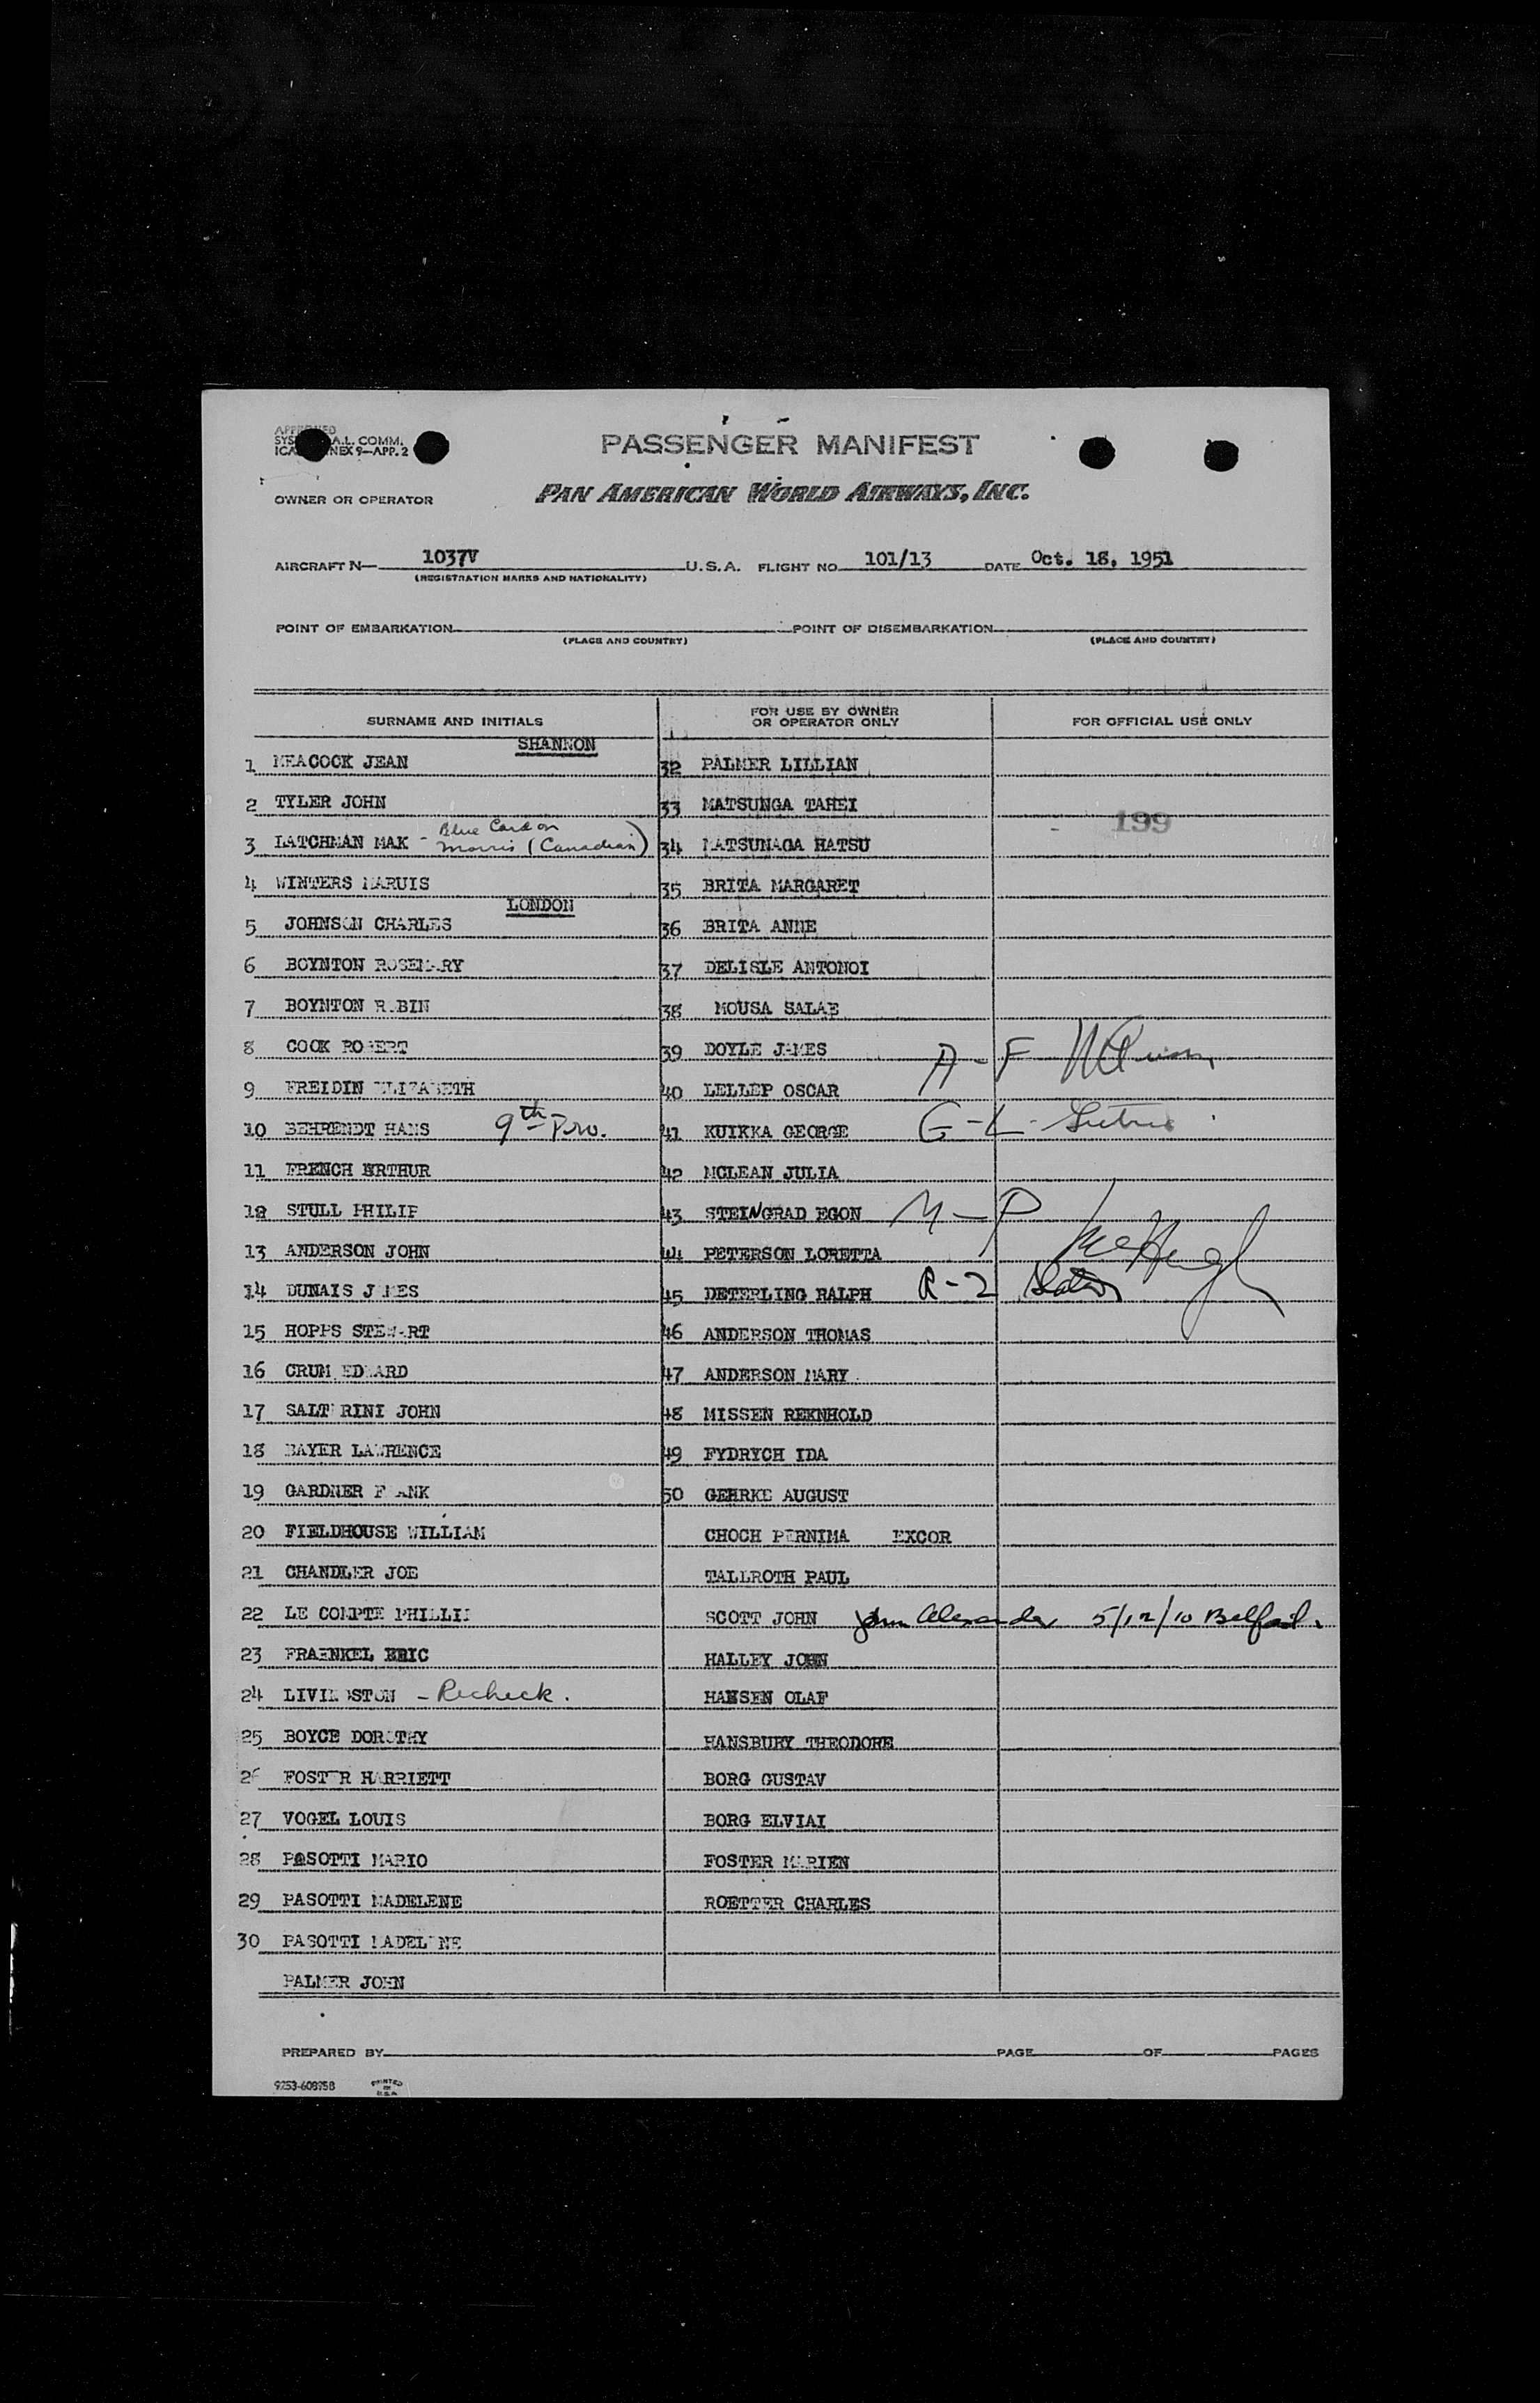 APPROVED
SYS A.L. COMM.
ICA NEX 9—APP. 2
PASSENGER MANIFEST
OWNER OR OPERATOR
PAN AMERICAN WORLD AIRWAYS, INC.
AIRCRAFT N— 1037V U.S.A. FLIGHT NO. 101/13 DATE Oct. 18, 1951
(REGISTRATION MARKS AND NATIONALITY)
POINT OF EMBARKATION POINT OF DISEMBARKATION
(PLACE AND COUNTRY) (PLACE AND COUNTRY)
SURNAME AND INITIALS
SHANNON
1 MEACOCK JEAN
2 TYLER JOHN
3 LATCHMAN MAK - Blue Card on
Morris (Canadian)
4 WINTERS MARUIS
LONDON
5 JOHNSON CHARLES
6 BOYNTON ROSEMARY
7 BOYNTON ROBIN
8 COOK ROBERT
9 FREIDIN ELIZABETH
10 BEHRENDT HANS 9th Prov.
11 FRENCH ERTHUR
12 STULL PHILIP
13 ANDERSON JOHN
14 DUNAIS JAMES
15 HOPPS STEWART
16 CRUM EDWARD
17 SALTERINI JOHN
18 BAYER LAWRENCE
19 GARDNER FRANK
20 FIELDHOUSE WILLIAM
21 CHANDLER JOE
22 LE COMPTE PHILLIP
23 FRAENKEL ERIC
24 LIVINGSTON - Recheck.
25 BOYCE DOROTHY
26 FOSTER HARRIETT
27 VOGEL LOUIS
28 PASOTTI MARIO
29 PASOTTI MADELENE
30 PASOTTI MADELENE
PALMER JOHN
FOR USE BY OWNER
OR OPERATOR ONLY
32 PALMER LILLIAN
33 MATSUNGA TAHEI
34 MATSUNAGA HATSU
35 BRITA MARGARET
36 BRITA ANNE
37 DELISLE ANTONOI
38 MOUSA SALAE
39 DOYLE JAMES A - F
40 LELLEP OSCAR
41 KUIKKA GEORGE G - L
42 MCLEAN JULIA
43 STEINGRAD EGON M - P
44 PETERSON LORETTA McHugh
45 DETERLING RALPH R - Z
46 ANDERSON THOMAS
47 ANDERSON MARY
48 MISSEN REKNHOLD
49 FYDRYCH IDA
50 GEHRKE AUGUST
CHOCH PERNIMA EXCOR
TALLROTH PAUL
SCOTT JOHN John Alexander 5/12/10 Belfast.
HALLEY JOHN
HANSEN OLAF
HANSBURY THEODORE
BORG GUSTAV
BORG ELVIAI
FOSTER MARIEN
ROETTER CHARLES
FOR OFFICIAL USE ONLY
199
PREPARED BY PAGE OF PAGES
9253-608958 PRINTED
IN
U.S.A.